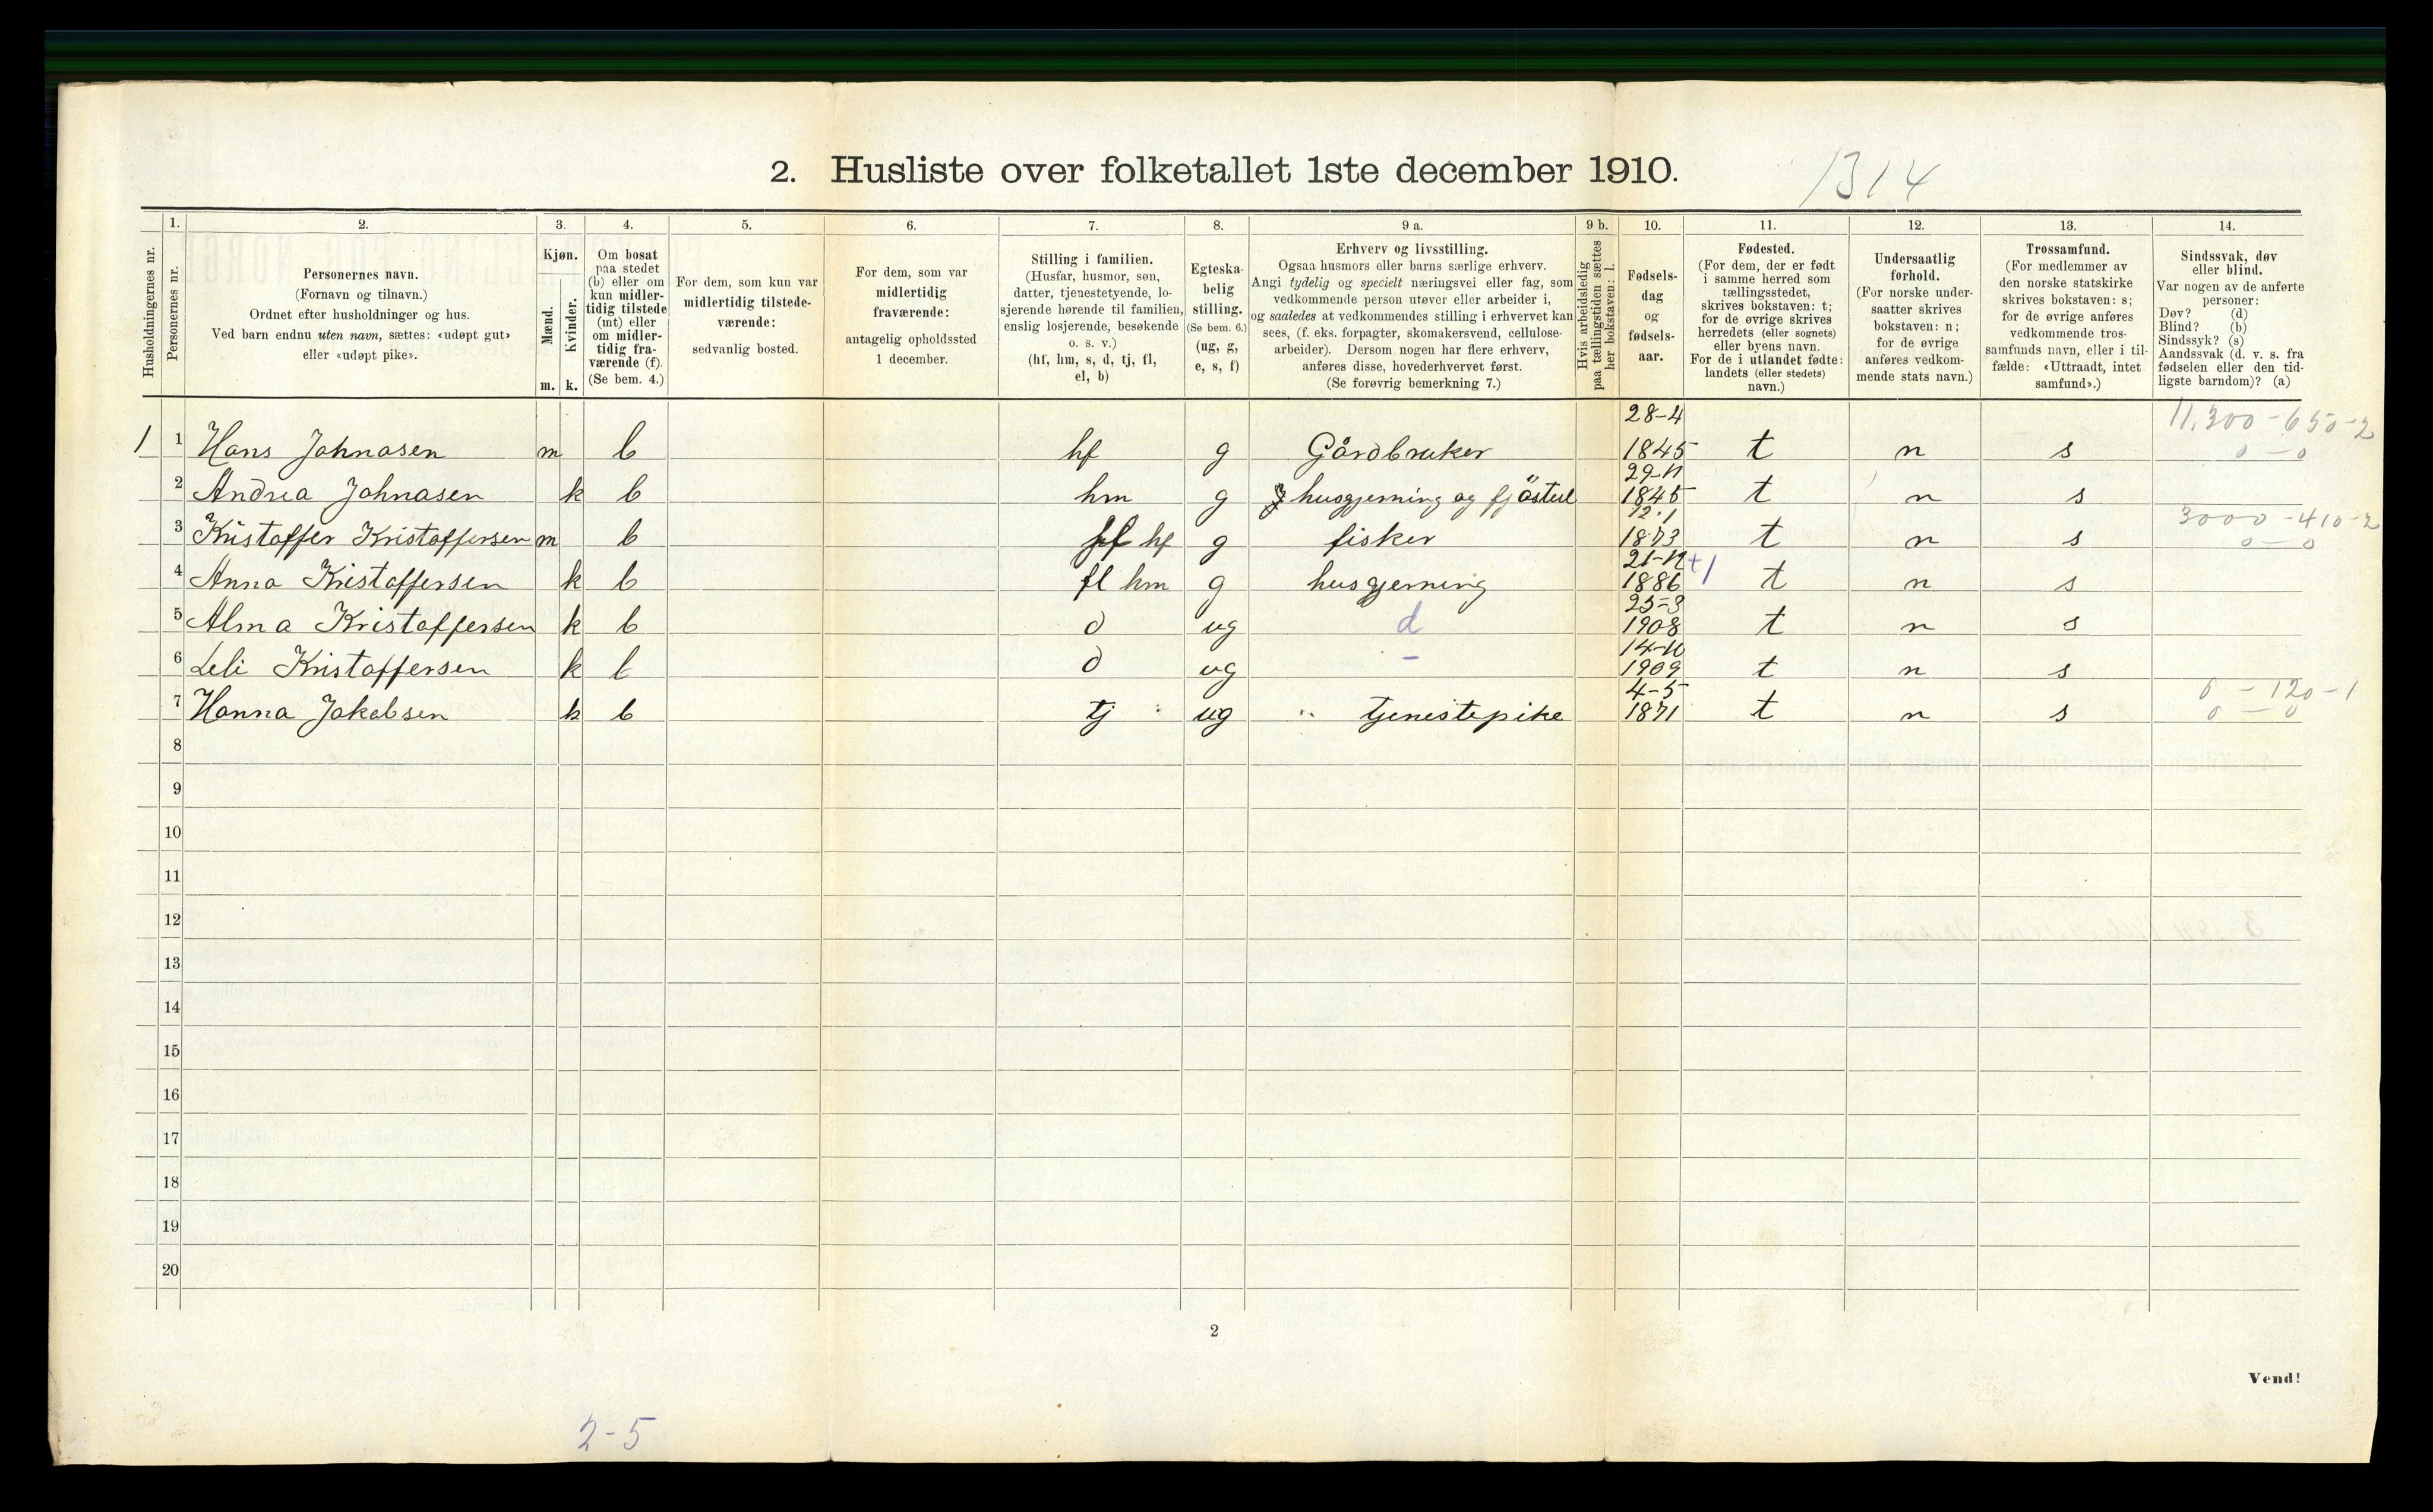 2. Husliste over folketallet 1ste december 1910.
1314
Husholdningernes nr.
1.
Personernes nr.
2.
Personernes navn.
(Fornavn og tilnavn.)
Ordnet efter husholdninger og hus.
Ved barn endnu uten navn, sættes: «udøpt gut»
eller «udøpt pike».
3.
Kjøn.
Mænd.
Kvinder.
m. k.
4.
Om bosat
paa stedet
(b) eller om
kun midler-
tidig tilstede
(mt) eller
om midler-
tidig fra-
værende (f).
(Se bem. 4.)
5.
For dem, som kun var
midlertidig tilstede-
værende:
sedvanlig bosted.
6.
For dem, som var
midlertidig
fraværende:
antagelig opholdssted
1 december.
7.
Stilling i familien.
(Husfar, husmor, søn,
datter, tjenestetyende, lo-
sjerende hørende til familien,
enslig losjerende, besøkende
o. s. v.)
(hf, hm, s, d, tj, fl,
el, b)
8.
Egteska-
belig
stilling.
(Se bem. 6.)
(ug, g,
e, s, f)
9 a.
Erhverv og livsstilling.
Ogsaa husmors eller barns særlige erhverv.
Angi tydelig og specielt næringsvei eller fag, som
vedkommende person utøver eller arbeider i,
og saaledes at vedkommendes stilling i erhvervet kan
sees, (f. eks. forpagter, skomakersvend, cellulose-
arbeider). Dersom nogen har flere erhverv,
anføres disse, hovederhvervet først.
(Se forøvrig bemerkning 7.)
9 b.
Hvis arbeidsledig
paa tællingstiden sættes
her bokstaven: l.
10.
Fødsels-
dag
og
fødsels-
aar.
11.
Fødested.
(For dem, der er født
i samme herred som
tællingsstedet,
skrives bokstaven: t;
for de øvrige skrives
herredets (eller sognets)
eller byens navn.
For de i utlandet fødte:
landets (eller stedets)
navn.)
12.
Undersaatlig
forhold.
(For norske under-
saatter skrives
bokstaven: n;
for de øvrige
anføres vedkom-
mende stats navn.)
13.
Trossamfund.
(For medlemmer av
den norske statskirke
skrives bokstaven: s;
for de øvrige anføres
vedkommende tros-
samfunds navn, eller i til-
fælde: «Uttraadt, intet
samfund».)
14.
Sindssvak, døv
eller blind.
Var nogen av de anførte
personer:
Døv? (d)
Blind? (b)
Sindssyk? (s)
Aandssvak (d. v. s. fra
fødselen eller den tid-
ligste barndom)? (a)
1 1 Hans Johnasen m b hf g Gårdbruker 28-4 1845 t n s 11,300-650-2 0-0
2 Andrea Johnasen k b hm g husgjerning og fjöstul 29-11 1845 t n s
3 Kristoffer Kristoffersen m b hf g fisker 12.1 1873 t n s 3000-410-2 0-0
4 Anna Kristoffersen k b fl hm g husgjerning 21-12 1886 +1 t n s
5 Alma Kristoffersen k b d ug d 25-3 1908 t n s
6 Leli Kristoffersen k b d ug - 14-10 1909 t n s
7 Hanna Jakobsen k b tj ug tjenestepike 4-5 1871 t n s 0-120-1 0-0
8
9
10
11
12
13
14
15
16
17
18
19
20
2
Vend!
2-5